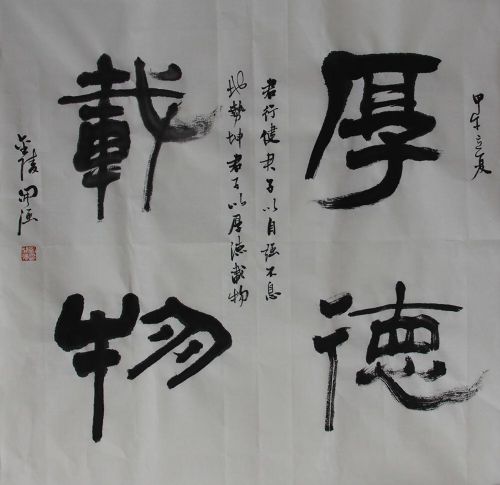 甲午立夏
厚德
君行健君子以自强不息
地势坤君子以厚德载物
載物
金陵